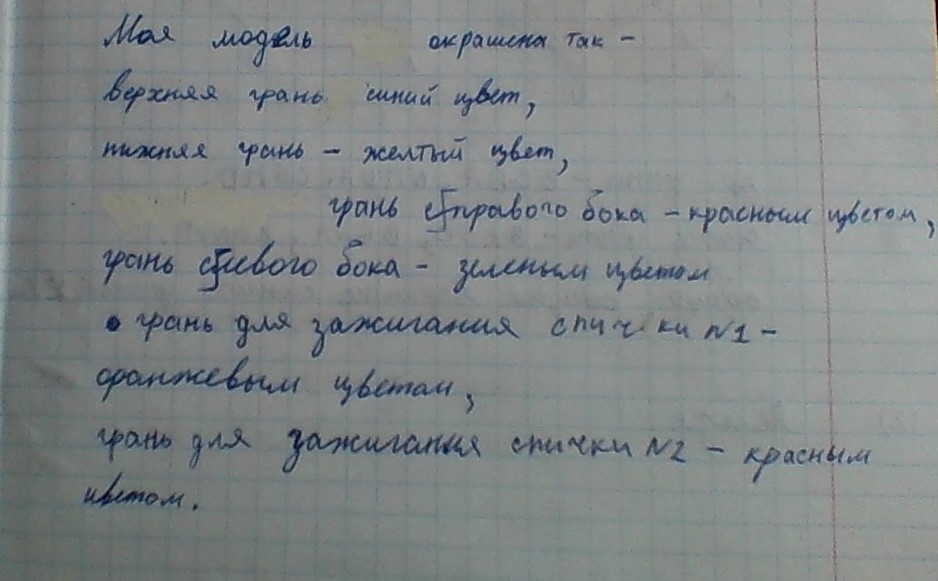 Моя модель окрашена так -
верхняя грань синий цвет,
нижняя грань - желтый цвет,
грань с правого бока - красным цветом,
грань с левого бока - зеленым цветом
грань для зажигания спички №1 -
оранжевым цветом,
грань для зажигания спички №2 - красным
цветом.